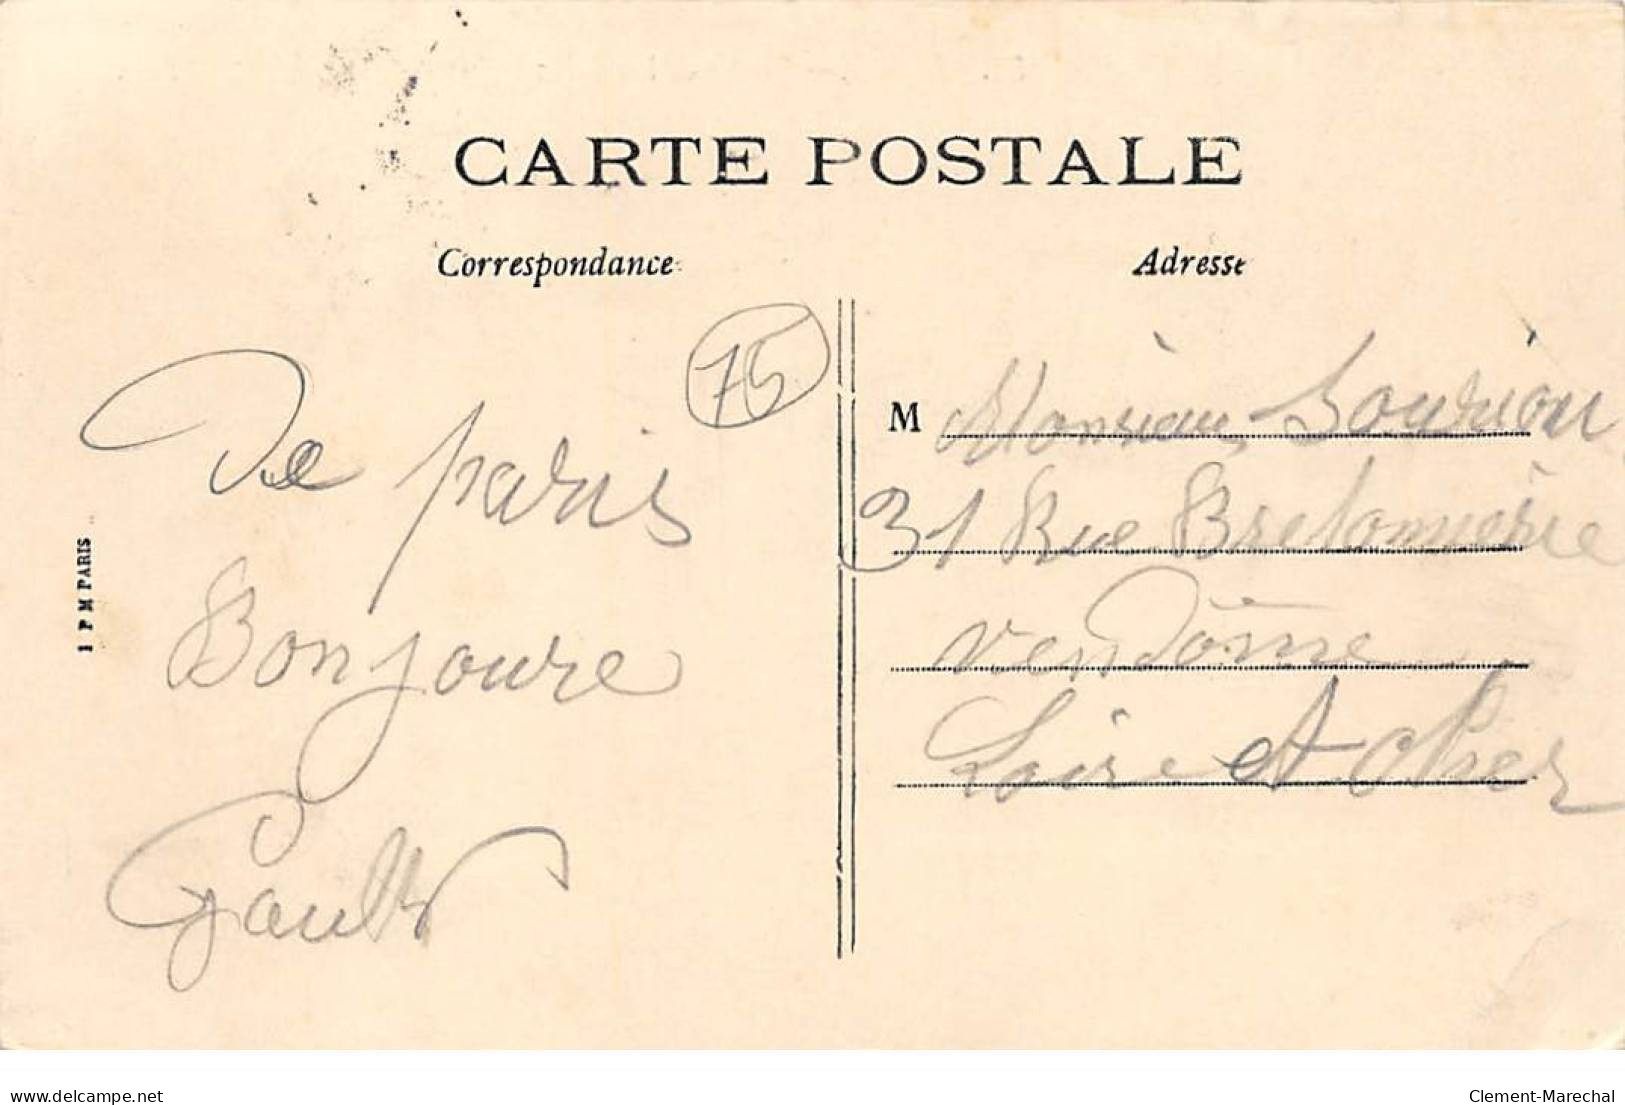 CARTE POSTALE
Correspondance
Adresse
75
De paris
Bonjoure
Gault
M Monsieur Souriou
31 Rue Bretonnerie
Vendôme
Loire et Cher
I P M PARIS
delcampe.net
Clement-Marechal